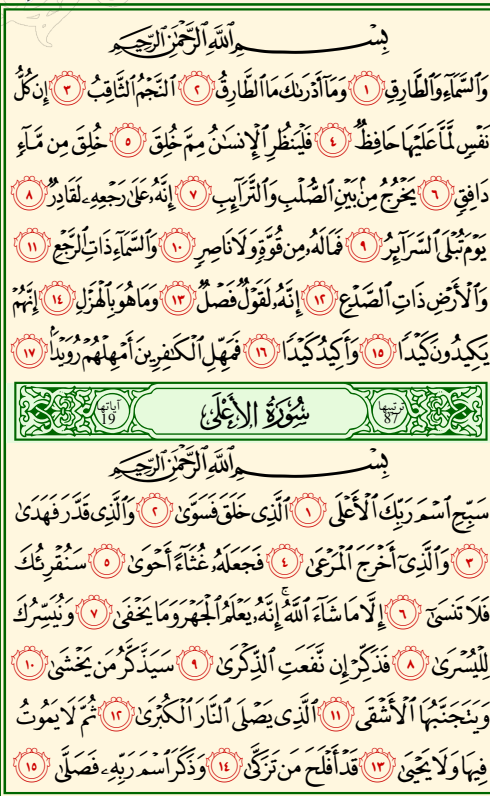 بِسْمِ ٱللَّهِ ٱلرَّحْمَٰنِ ٱلرَّحِيمِ
وَٱلسَّمَآءِ وَٱلطَّارِقِ ١ وَمَآ أَدْرَىٰكَ مَا ٱلطَّارِقُ ٢ ٱلنَّجْمُ ٱلثَّاقِبُ ٣ إِن كُلُّ
نَفْسٍ لَّمَّا عَلَيْهَا حَافِظٌ ٤ فَلْيَنظُرِ ٱلْإِنسَٰنُ مِمَّ خُلِقَ ٥ خُلِقَ مِن مَّآءٍ
دَافِقٍ ٦ يَخْرُجُ مِنۢ بَيْنِ ٱلصُّلْبِ وَٱلتَّرَآئِبِ ٧ إِنَّهُۥ عَلَىٰ رَجْعِهِۦ لَقَادِرٌ ٨
يَوْمَ تُبْلَى ٱلسَّرَآئِرُ ٩ فَمَا لَهُۥ مِن قُوَّةٍ وَلَا نَاصِرٍ ١٠ وَٱلسَّمَآءِ ذَاتِ ٱلرَّجْعِ ١١
وَٱلْأَرْضِ ذَاتِ ٱلصَّدْعِ ١٢ إِنَّهُۥ لَقَوْلٌ فَصْلٌ ١٣ وَمَا هُوَ بِٱلْهَزْلِ ١٤ إِنَّهُمْ
يَكِيدُونَ كَيْدًا ١٥ وَأَكِيدُ كَيْدًا ١٦ فَمَهِّلِ ٱلْكَٰفِرِينَ أَمْهِلْهُمْ رُوَيْدًۢا ١٧
ترتيبها 87 سُورَةُ الأَعْلَىٰ آياتها 19
بِسْمِ ٱللَّهِ ٱلرَّحْمَٰنِ ٱلرَّحِيمِ
سَبِّحِ ٱسْمَ رَبِّكَ ٱلْأَعْلَى ١ ٱلَّذِى خَلَقَ فَسَوَّىٰ ٢ وَٱلَّذِى قَدَّرَ فَهَدَىٰ
٣ وَٱلَّذِىٓ أَخْرَجَ ٱلْمَرْعَىٰ ٤ فَجَعَلَهُۥ غُثَآءً أَحْوَىٰ ٥ سَنُقْرِئُكَ
فَلَا تَنسَىٰٓ ٦ إِلَّا مَا شَآءَ ٱللَّهُ ۚ إِنَّهُۥ يَعْلَمُ ٱلْجَهْرَ وَمَا يَخْفَىٰ ٧ وَنُيَسِّرُكَ
لِلْيُسْرَىٰ ٨ فَذَكِّرْ إِن نَّفَعَتِ ٱلذِّكْرَىٰ ٩ سَيَذَّكَّرُ مَن يَخْشَىٰ ١٠
وَيَتَجَنَّبُهَا ٱلْأَشْقَى ١١ ٱلَّذِى يَصْلَى ٱلنَّارَ ٱلْكُبْرَىٰ ١٢ ثُمَّ لَا يَمُوتُ
فِيهَا وَلَا يَحْيَىٰ ١٣ قَدْ أَفْلَحَ مَن تَزَكَّىٰ ١٤ وَذَكَرَ ٱسْمَ رَبِّهِۦ فَصَلَّىٰ ١٥